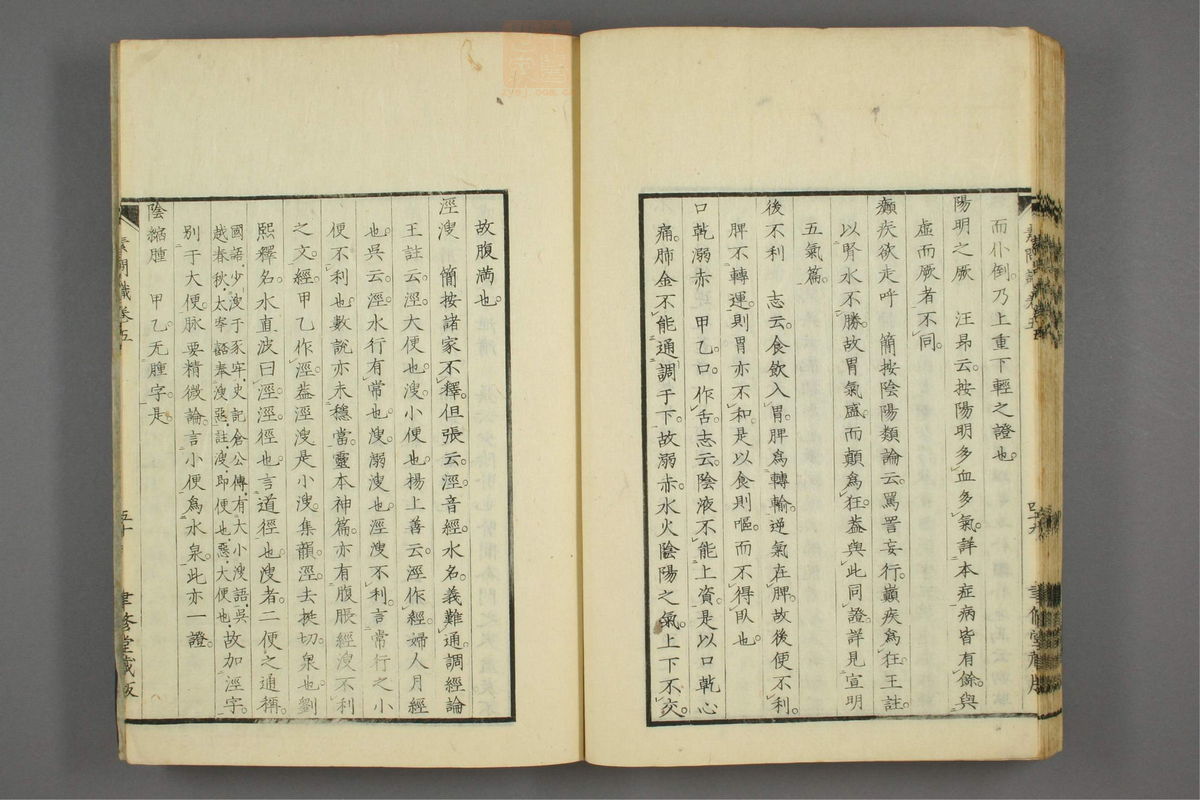 而仆倒。乃上重下輕之證也。
陽明之厥　汪昂云。按陽明多血多氣。詳本症病皆有餘。與
虛而厥者不同。
癲疾欲走呼　簡按陰陽類論云。罵詈妄行。巔疾爲狂。王註
以腎水不勝。故胃氣盛而顛爲狂。葢與此同證。詳見宣明
五氣篇。
後不利　志云。食飮入胃。脾爲轉輸。逆氣在脾。故後便不利。
脾不轉運。則胃亦不和。是以食則嘔。而不得臥也。
口乾溺赤　甲乙。口。作舌。志云。陰液不能上資。是以口乾心
痛。肺金不能通調于下。故溺赤。水火陰陽之氣。上下不交。
故腹滿也。
涇溲　簡按諸家不釋。但張云。涇音經。水名。義難通。調經論
王註云。涇大便也。溲小便也。楊上善云。涇作經。婦人月經
也。吳云。涇。水行有常也。溲。溺溲也。涇溲不利。言常行之小
便不利也。數說亦未穩當。靈本神篇。亦有腹脹經溲不利
之文。經。甲乙作涇。葢涇溲是小溲。集韻。涇。去挺切。泉也。劉
熙釋名。水直波曰涇。涇徑也。言道徑也。溲者。二便之通稱。
國語。少溲于豕牢。史記倉公傳。有大小溲語。吳
越春秋。太宰嚭奉溲惡。註。溲卽便也。惡。大便也。故加涇字。
別于大便。脉要精微論。言小便爲水泉。此亦一證。
陰縮腫　甲乙无腫字。是
素問識卷五
五十
聿修堂藏版